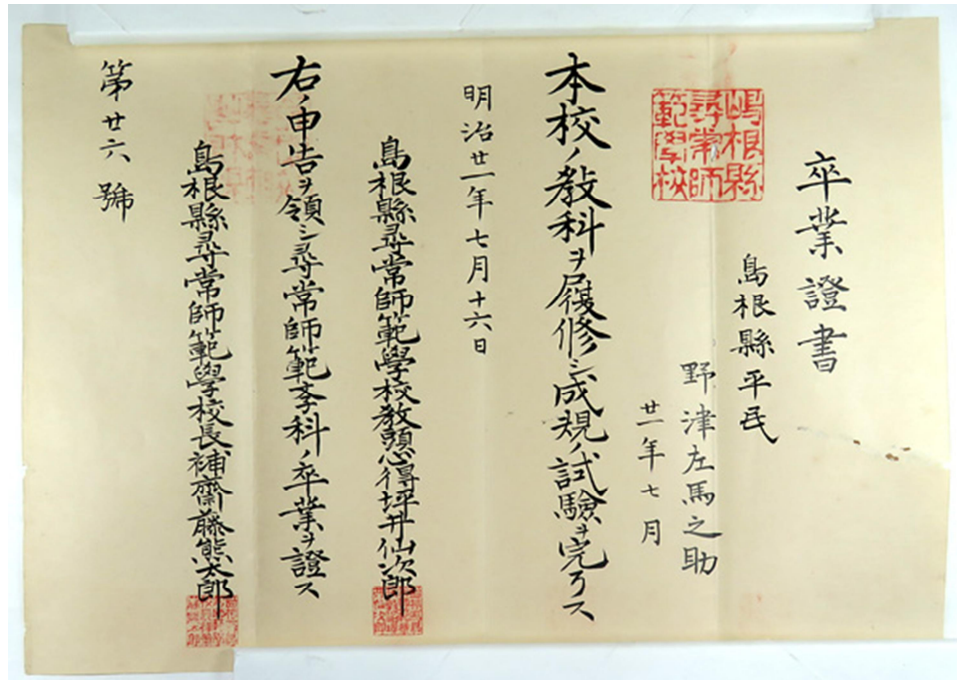 卒業證書
島根縣平民
野津左馬之助
廿一年七月
嶋根縣
尋常師
範學校
本校ノ教科ヲ履修シ成規ノ試驗ヲ完了ス
明治廿一年七月十六日
島根縣尋常師範學校教頭心得坪井仙次郎
右ノ申告ヲ領シ尋常師範学科ノ卒業ヲ證ス
島根縣尋常師範學校長補齋藤熊太郎
第廿六號